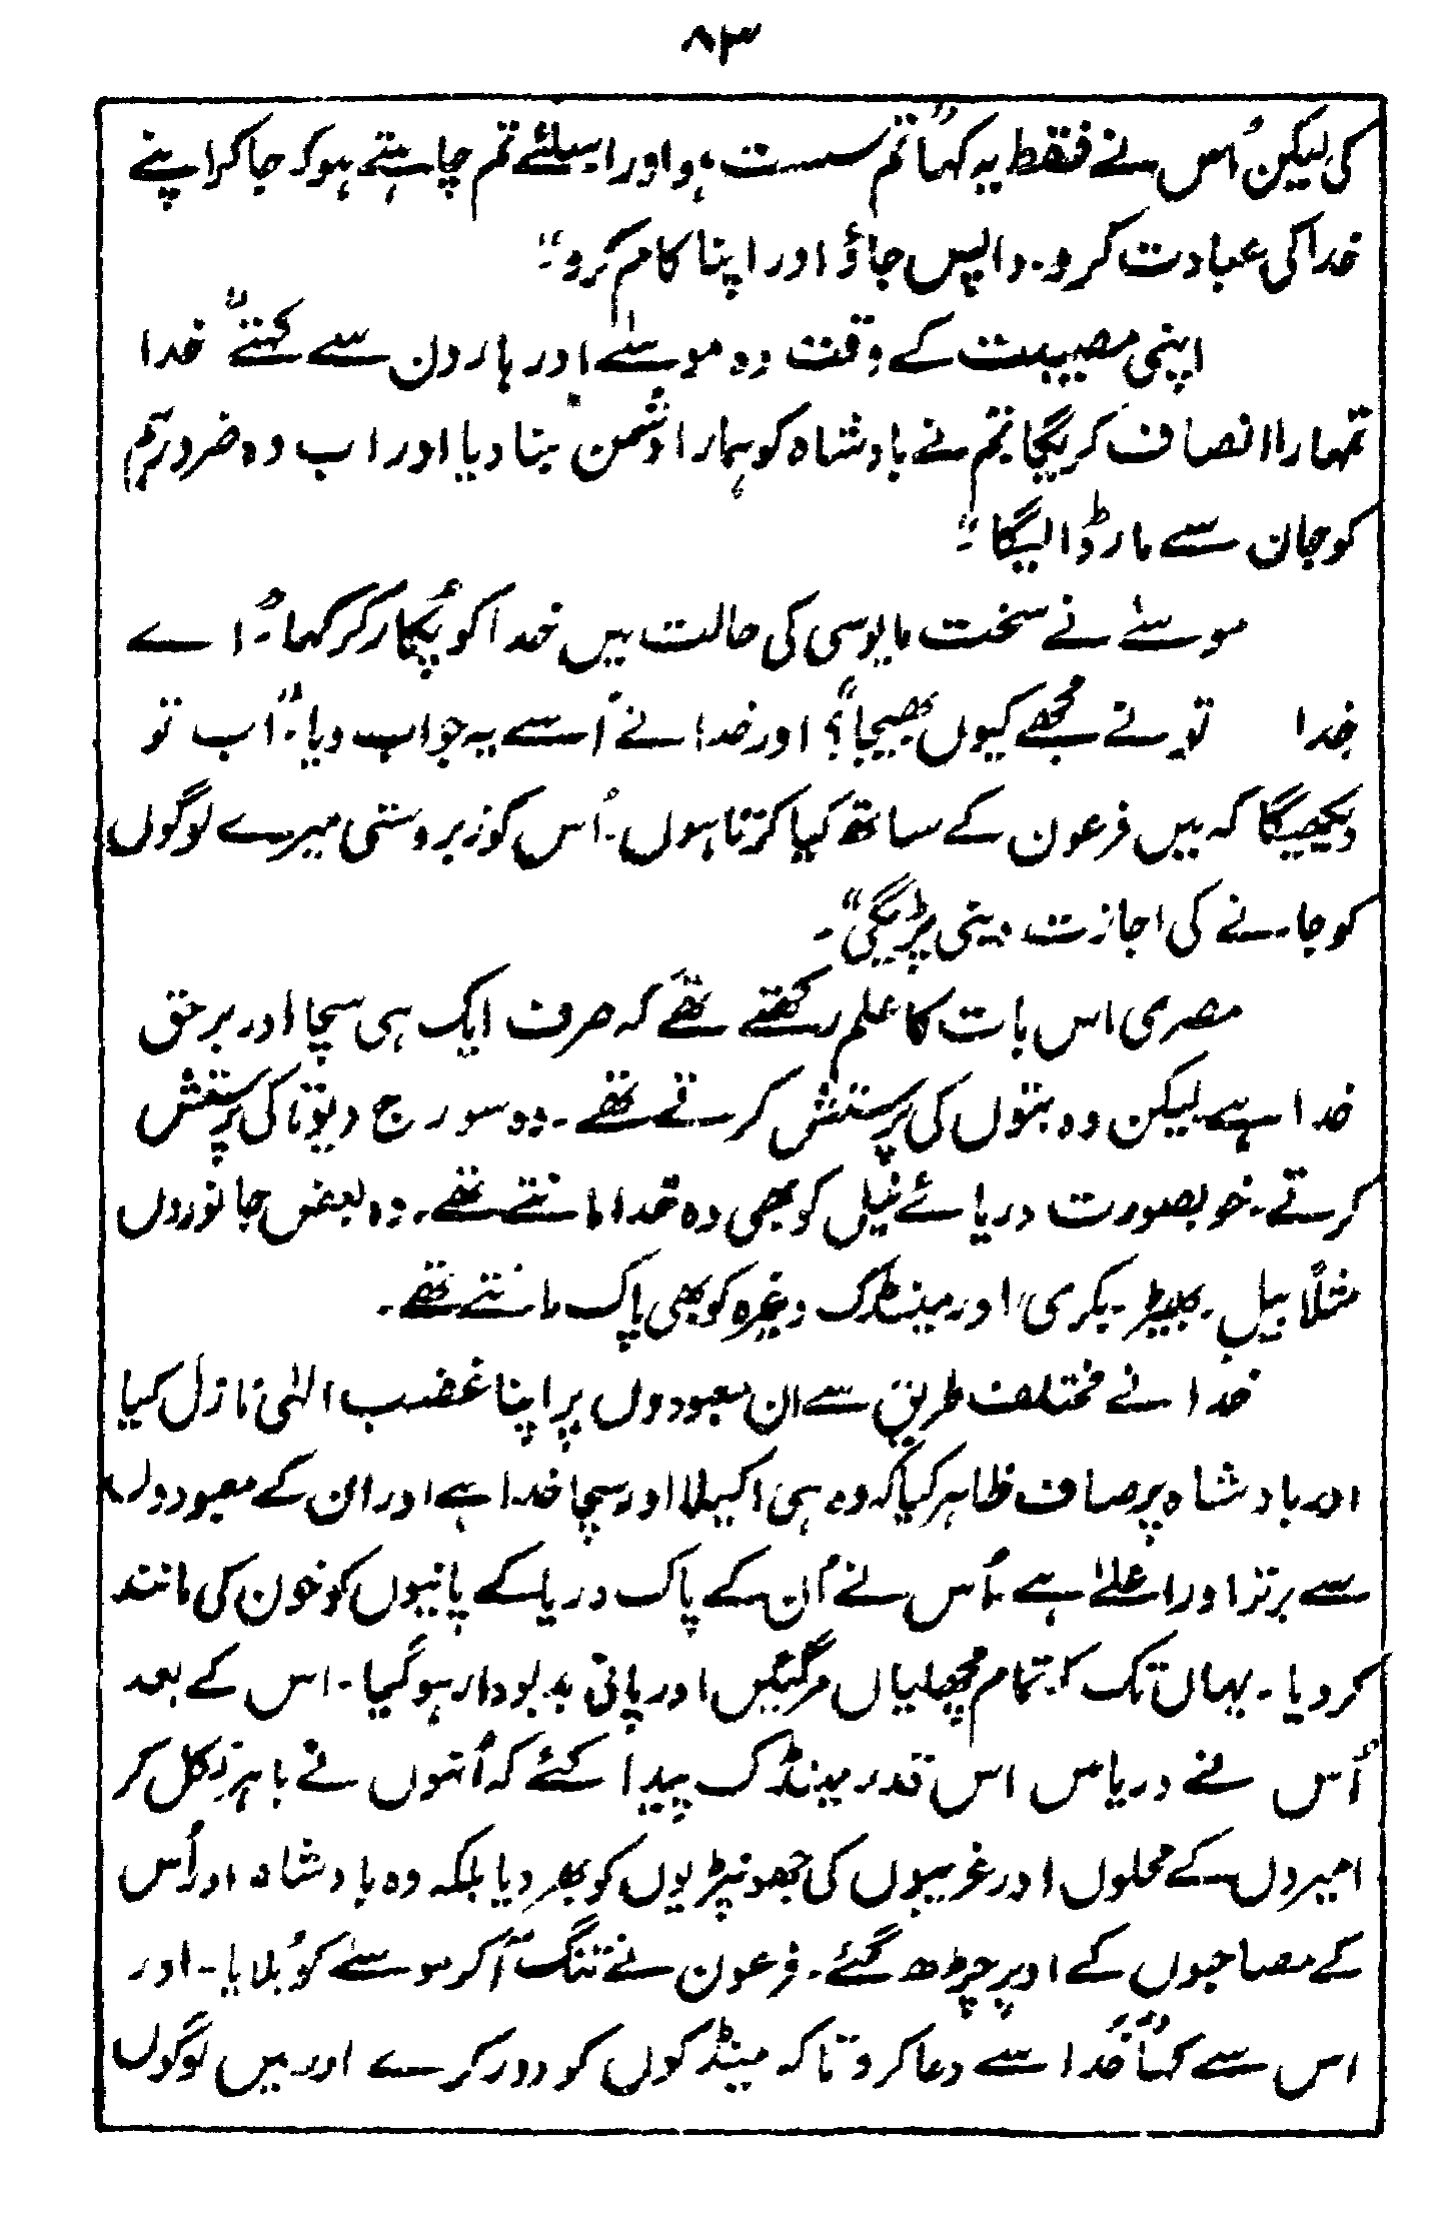 ۸۳
کی لیکن اُس نے فقط یہ کہا "تم سست ہو اور اسیلئے تم چاہتے ہو کہ جا کر اپنے
خدا کی عبادت کرو۔ واپس جاؤ اور اپنا کام کرو"۔
اپنی مصیبت کے وقت وہ موسےٰ اور ہارون سے کہتے "خدا
تمہارا انصاف کریگا تم نے بادشاہ کو ہمارا دُشمن بنا دیا اور اب وہ ضرور ہم
کو جان سے مار ڈالیگا"۔
موسےٰ نے سخت مایوسی کی حالت میں خدا کو پُکار کر کہا۔ "اے
خدا تو نے مجھے کیوں بھیجا"؟ اور خدا نے اُسے یہ جواب دیا۔ "اب تو
دیکھیگا کہ میں فرعون کے ساتھ کیا کرتا ہوں۔ اُس کو زبردستی میرے لوگوں
کو جانے کی اجازت دینی پڑیگی"۔
مصری اس بات کا علم رکھتے تھے کہ صرف ایک ہی سچا اور برحق
خدا ہے لیکن وہ بتوں کی پرستش کرتے تھے۔ وہ سورج دیوتا کی پرستش
کرتے۔ خوبصورت دریائے نیل کو بھی وہ خدا مانتے تھے۔ وہ بعض جانوروں
مثلاً بیل۔ بھیڑ۔ بکری اور مینڈک وغیرہ کو بھی پاک مانتے تھے۔
خدا نے مختلف طریق سے ان معبودوں پر اپنا غضب الہٰی نازل کیا
اور بادشاہ پر صاف ظاہر کیا کہ وہ ہی اکیلا اور سچا خدا ہے اور ان کے معبودوں
سے برتر اور اعلےٰ ہے۔ اُس نے اُن کے پاک دریا کے پانیوں کو خون کی مانند
کر دیا۔ یہاں تک کہ تمام مچھلیاں مر گئیں اور پانی بدبودار ہو گیا۔ اس کے بعد
اُس نے دریا میں اس قدر مینڈک پیدا کئے کہ اُنہوں نے باہر نکل کر
امیروں کے محلوں اور غریبوں کی جھونپڑیوں کو بھر دیا بلکہ وہ بادشاہ اور اُس
کے مصاحبوں کے اوپر چڑھ گئے۔ فرعون نے تنگ آ کر موسےٰ کو بُلایا۔ اور
اس سے کہا "خُدا سے دعا کرو تاکہ مینڈکوں کو دور کرے اور میں لوگوں